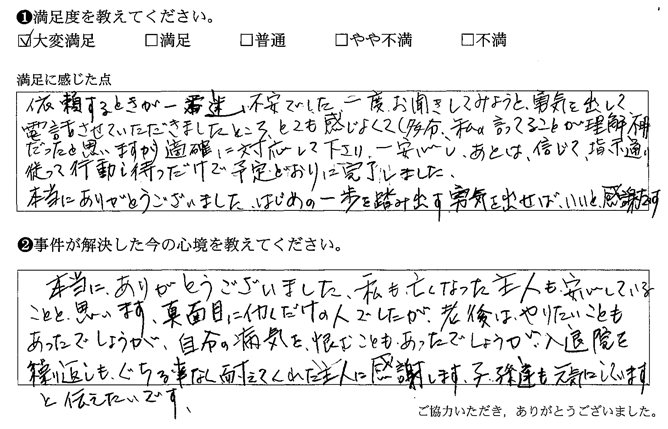 ❶満足度を教えてください。
☑大変満足 □満足 □普通 □やや不満 □不満
満足に感じた点
依頼するときが一番迷い不安でした。一度、お聞きしてみようと、勇気を出して
電話させていただきましたところ、とても感じよくて(多分、私の言ってることが理解不明
だったと思いますが)適確に対応して下さり、一安心し、あとは、信じて、指示通り
従って行動し待つだけで予定どおりに完了しました。
本当にありがとうございました。はじめの一歩を踏み出す勇気を出せば、いいと、感謝です
❷事件が解決した今の心境を教えてください。
本当に、ありがとうございました、私も亡くなった主人も、安心している
ことと、思います、真面目に働くだけの人でしたが、老後は、やりたいことも
あったでしょうが、自分の病気を、恨むこともあったでしょうが、入退院を
繰り返しも、ぐちる事なく耐えてくれた主人に感謝します、子、孫達も元気にしています
と伝えたいです、
ご協力いただき、ありがとうございました。